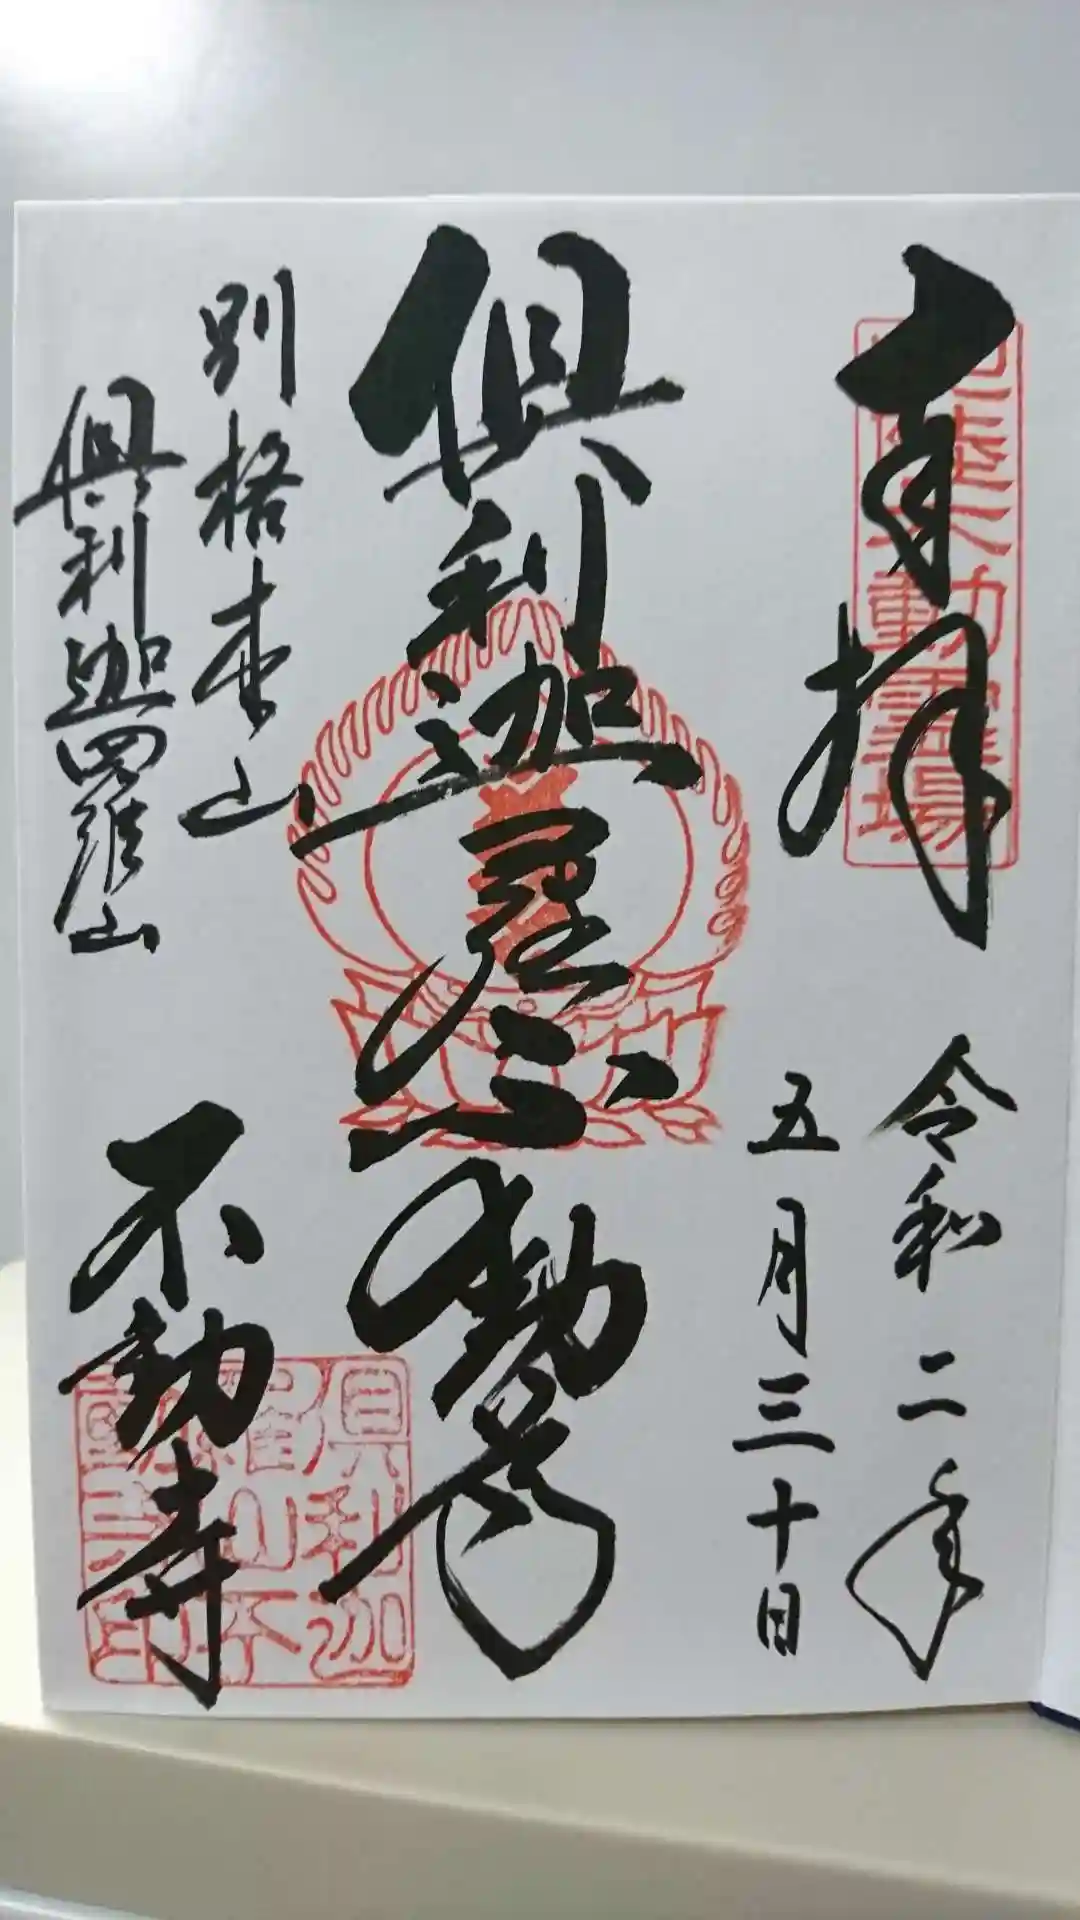 奉拝
令和二年
五月三十日
倶利迦羅不動尊
別格本山
倶利迦羅山
不動寺